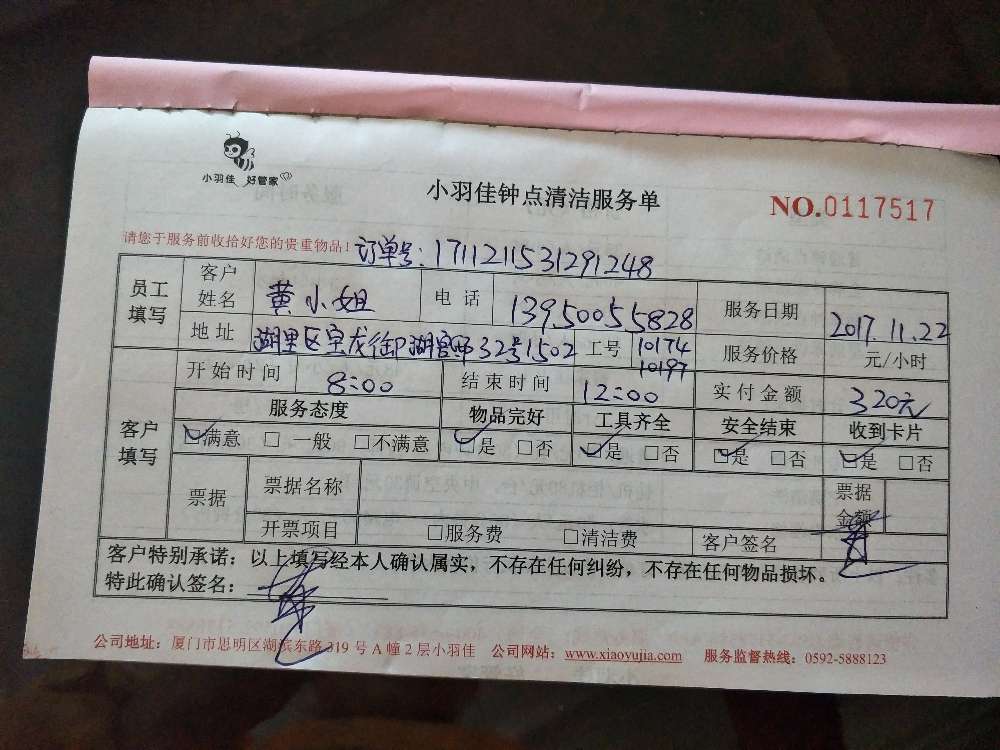 小羽佳 好管家
小羽佳钟点清洁服务单
NO.0117517
请您于服务前收拾好您的贵重物品!
订单号:1711211531291248
员工填写 客户姓名 黄小姐 电话 13950055828 服务日期 2017.11.22
地址 湖里区宝龙御湖官邸32号1502 工号 10174 10197 服务价格 元/小时
客户填写 开始时间 8:00 结束时间 12:00 实付金额 320元
服务态度 物品完好 工具齐全 安全结束 收到卡片
☑满意 □一般 □不满意 ☑是 □否 ☑是 □否 ☑是 □否 ☑是 □否
票据 票据名称 票据金额
开票项目 □服务费 □清洁费 客户签名
客户特别承诺:以上填写经本人确认属实,不存在任何纠纷,不存在任何物品损坏。
特此确认签名:
公司地址:厦门市思明区湖滨东路319号A幢2层小羽佳 公司网站:www.xiaoyujia.com 服务监督热线:0592-5888123